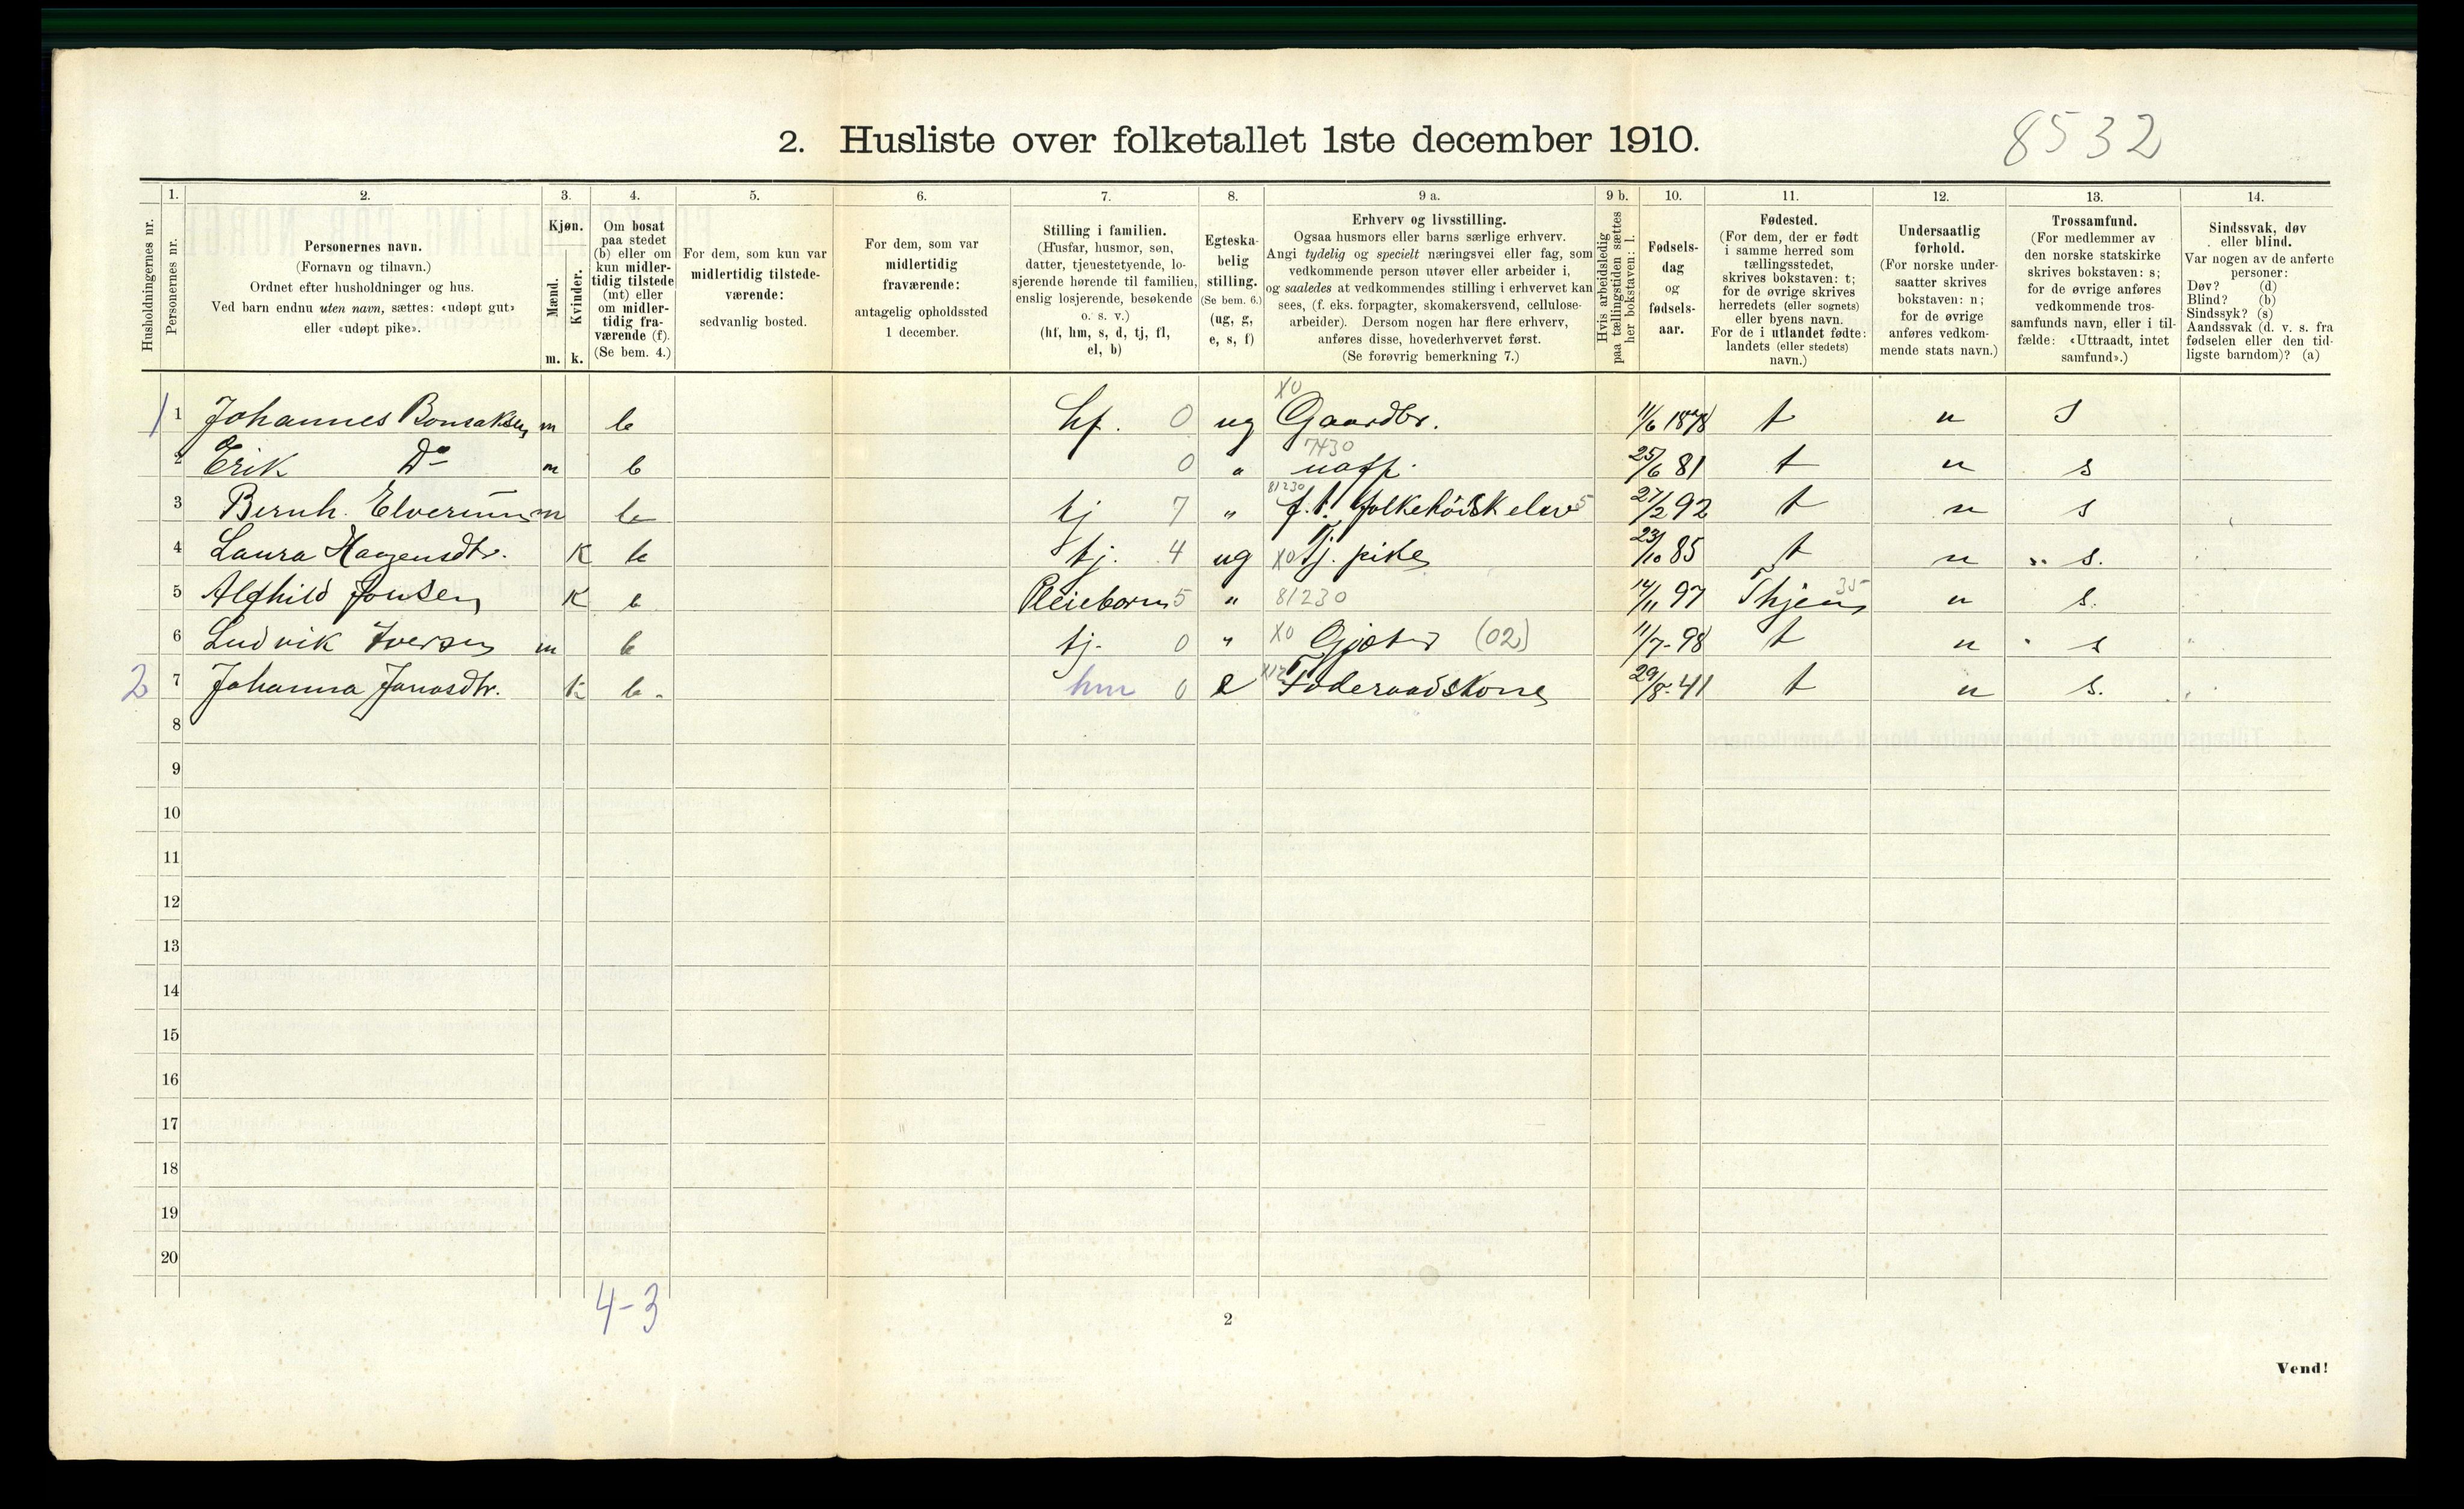 2. Husliste over folketallet 1ste december 1910.
8532
Husholdningernes nr.
1.
Personernes nr.
2.
Personernes navn.
(Fornavn og tilnavn.)
Ordnet efter husholdninger og hus.
Ved barn endnu uten navn, sættes: «udøpt gut»
eller «udøpt pike».
3.
Kjøn.
Mænd.
Kvinder.
m. k.
4.
Om bosat
paa stedet
(b) eller om
kun midler-
tidig tilstede
(mt) eller
om midler-
tidig fra-
værende (f).
(Se bem. 4.)
5.
For dem, som kun var
midlertidig tilstede-
værende:
sedvanlig bosted.
6.
For dem, som var
midlertidig
fraværende:
antagelig opholdssted
1 december.
7.
Stilling i familien.
(Husfar, husmor, søn,
datter, tjenestetyende, lo-
sjerende hørende til familien,
enslig losjerende, besøkende
o. s. v.)
(hf, hm, s, d, tj, fl,
el, b)
8.
Egteska-
belig
stilling.
(Se bem. 6.)
(ug, g,
e, s, f)
9 a.
Erhverv og livsstilling.
Ogsaa husmors eller barns særlige erhverv.
Angi tydelig og specielt næringsvei eller fag, som
vedkommende person utøver eller arbeider i,
og saaledes at vedkommendes stilling i erhvervet kan
sees, (f. eks. forpagter, skomakersvend, cellulose-
arbeider). Dersom nogen har flere erhverv,
anføres disse, hovederhvervet først.
(Se forøvrig bemerkning 7.)
9 b.
Hvis arbeidsledig
paa tællingstiden sættes
her bokstaven: l.
10.
Fødsels-
dag
og
fødsels-
aar.
11.
Fødested.
(For dem, der er født
i samme herred som
tællingsstedet,
skrives bokstaven: t;
for de øvrige skrives
herredets (eller sognets)
eller byens navn.
For de i utlandet fødte:
landets (eller stedets)
navn.)
12.
Undersaatlig
forhold.
(For norske under-
saatter skrives
bokstaven: n;
for de øvrige
anføres vedkom-
mende stats navn.)
13.
Trossamfund.
(For medlemmer av
den norske statskirke
skrives bokstaven: s;
for de øvrige anføres
vedkommende tros-
samfunds navn, eller i til-
fælde: «Uttraadt, intet
samfund».)
14.
Sindssvak, døv
eller blind.
Var nogen av de anførte
personer:
Døv? (d)
Blind? (b)
Sindssyk? (s)
Aandssvak (d. v. s. fra
fødselen eller den tid-
ligste barndom)? (a)
X0
1 1 Johannes Bonsaksen m b hf. 0 ug Gaardbr. 11/6 1878 t n s
7430
2 Erik Do m b 0 " uoff. 25/6 81 t n s
81230
3 Bernh. Elverum m b tj 7 " f. t. folkehöisk elev 5 27/2 92 t n s
4 Laura Hagensdtr. K b tj. 4 ug X0 Tj. pike 23/10 85 t n s.
35
5 Alfhild Jonsen K b Pleiebarn 5 " 81230 14/11 97 n s.
6 Ludvik Iversen m b tj. 0 " X0 Gjæter (02) 11/7-98 t n s
2 7 Johanna Jonasdtr. k b. hm 0 e X12 Föderaadskone 29/8-41 t n s.
8
9
10
11
12
13
14
15
16
17
18
19
20
4-3
2
Vend!